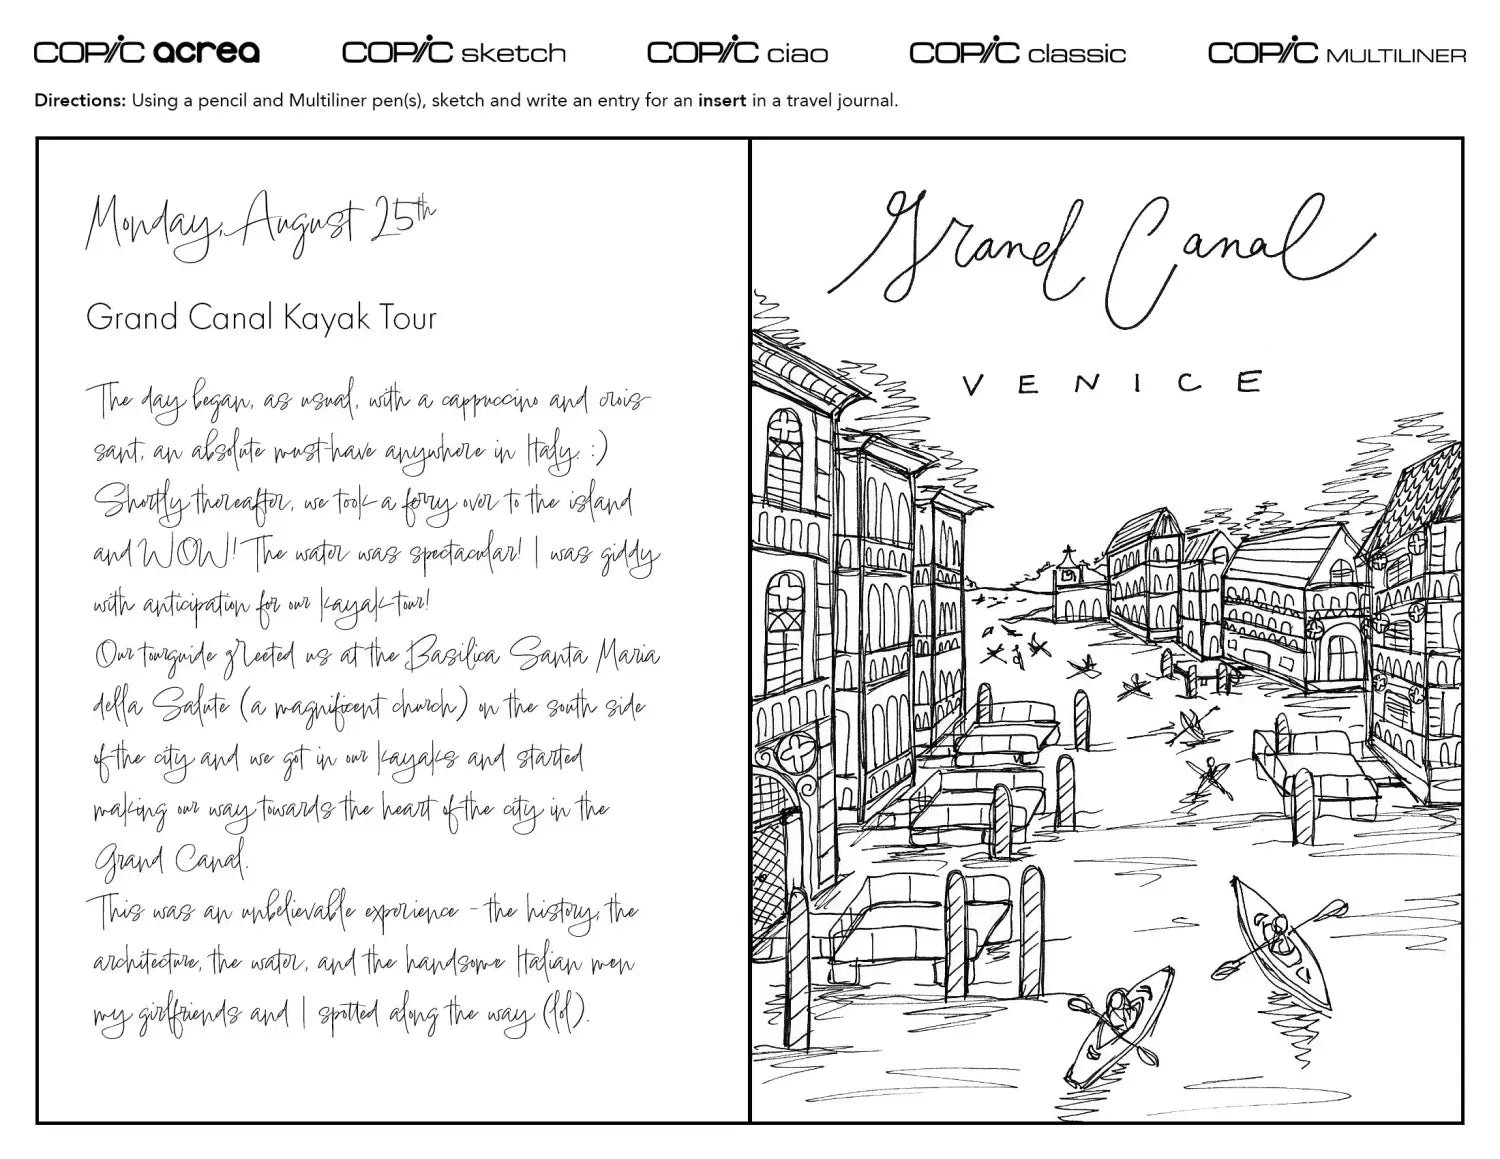 COPIC acrea COPIC sketch COPIC ciao COPIC classic COPIC MULTILINER
Directions: Using a pencil and Multiliner pen(s), sketch and write an entry for an insert in a travel journal.
Monday, August 25th
Grand Canal Kayak Tour
The day began, as usual, with a cappuccino and crois-
sant, an absolute must-have anywhere in Italy. :)
Shortly thereafter, we took a ferry over to the island
and WOW! The water was spectacular! I was giddy
with anticipation for our kayak tour!
Our tourguide greeted us at the Basilica Santa Maria
della Salute (a magnificent church) on the south side
of the city and we got in our kayaks and started
making our way towards the heart of the city in the
Grand Canal.
This was an unbelievable experience - the history, the
architecture, the water, and the handsome Italian men
my girlfriends and I spotted along the way (lol).
Grand Canal
VENICE